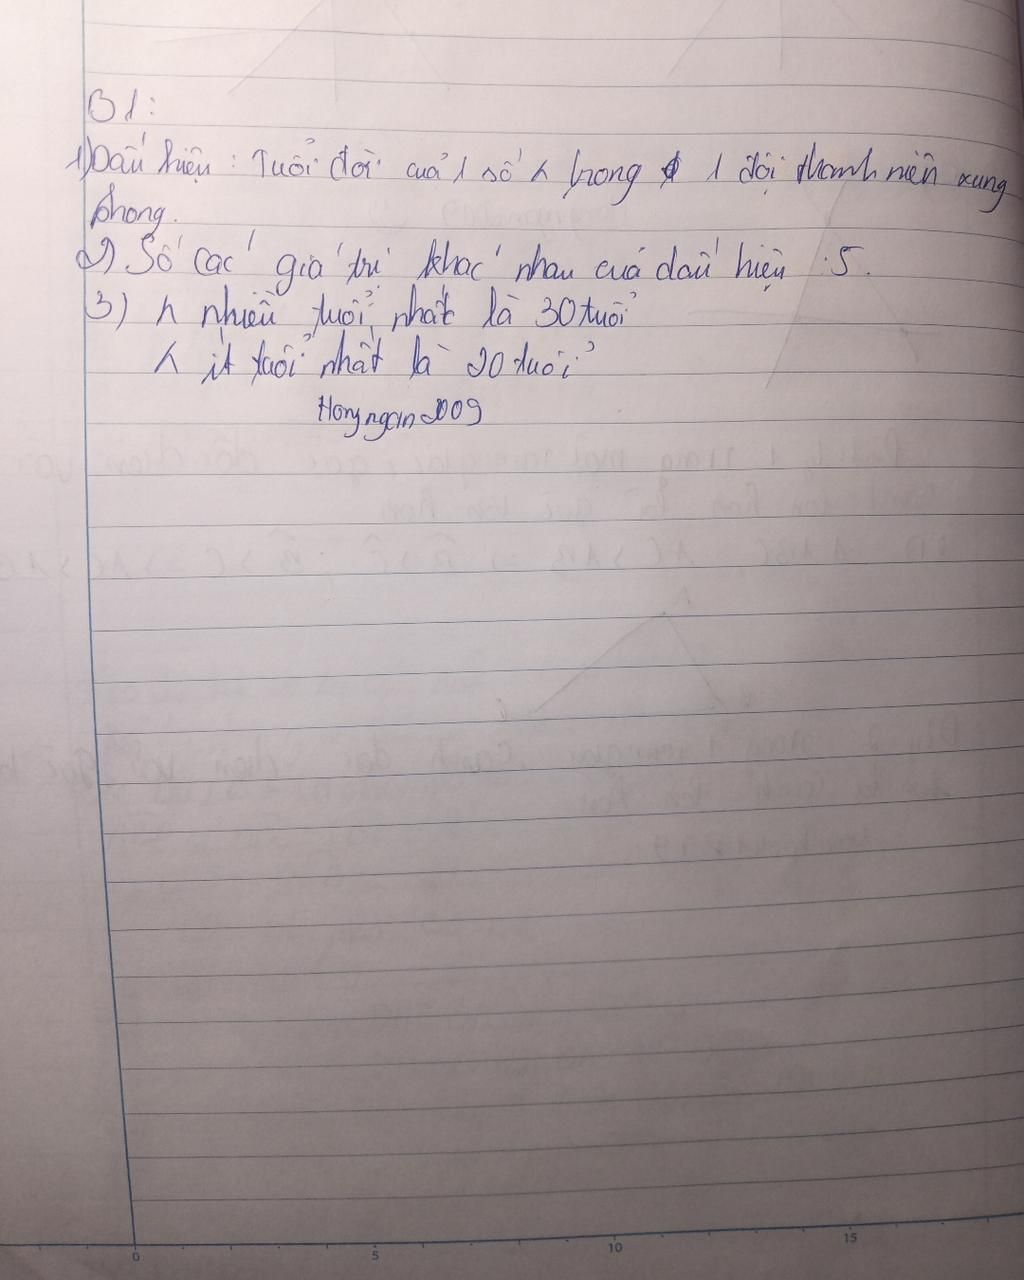 B1:
1) Dấu hiệu : Tuổi đời của 1 số ㅅ trong 1 đội thanh niên xung
phong.
2) Số các giá trị khác nhau của dấu hiệu : 5.
3) ㅅ nhiều tuổi nhất là 30 tuổi
ㅅ ít tuổi nhất là 20 tuổi
Hongngan2009
0 5 10 15